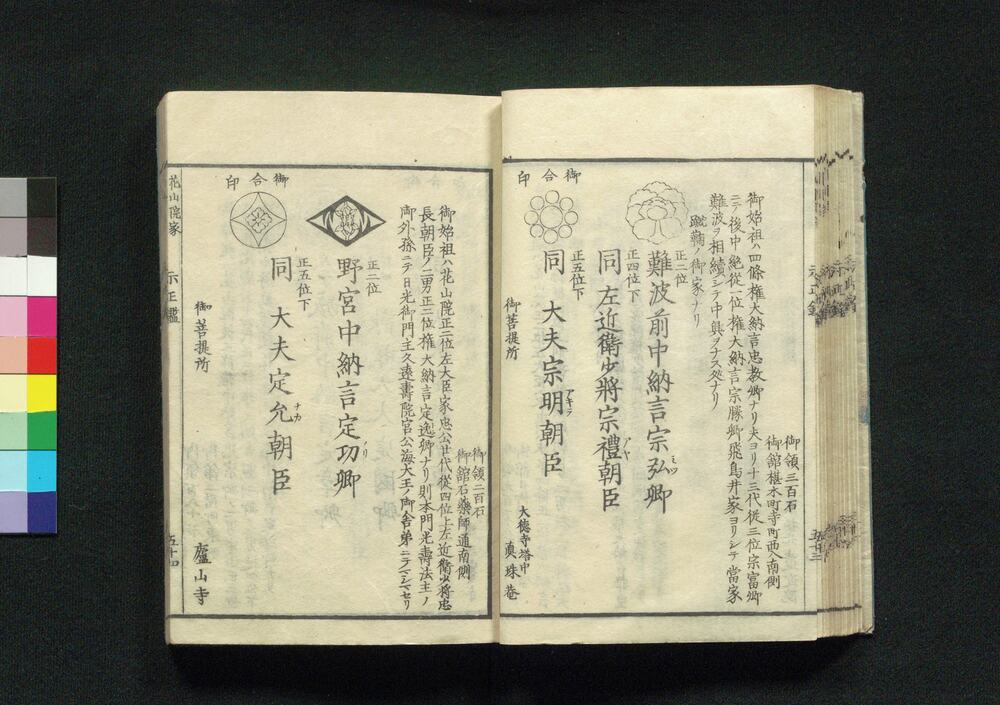 御領三百石
御舘椹木町寺町西入南側
御始祖ハ四條権大納言忠教卿ナリ夫ヨリ十三代従三位宗富卿
ニテ後中絶從一位權大納言宗勝卿飛鳥井家ヨリシテ當家
難波ヲ相續シテ中興ヲナス処ナリ
蹴鞠ノ御家ナリ
正二位
難波前中納言宗弘卿
ミツ
正四位下
同左近衛少將宗禮朝臣
アヤ
正五位下
同大夫宗明朝臣
アキラ
御合印
御菩提所
大徳寺塔中
真珠菴
御領二百石
御舘石藥師通南側
御始祖ハ花山院正二位左大臣家忠公廿代從四位上左近衛少将忠
長朝臣ノ二男正二位権大納言定逸卿ナリ則本門光壽法主ノ
御外孫ニテ日光御門主久遠壽院宮公海大王ノ御舎弟ニテマシマセリ
正二位
野宮中納言定功卿
ノリ
正五位下
同大夫定允朝臣
ナカ
御合印
御菩提所
廬山寺
花山院家
示正鑑
五十四